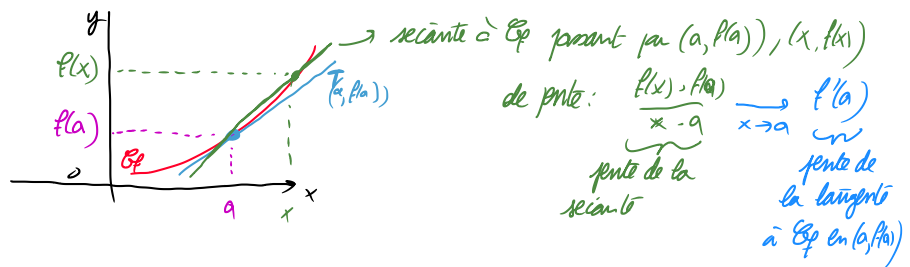 y
f(x)
f(a)
𝒞f
o
a
x
x
T(a, f(a))
→ secante à 𝒞f passant par (a, f(a)), (x, f(x))
de pente : f(x) - f(a) / x - a → x→a f'(a)
pente de la secante
pente de la tangente à 𝒞f en (a, f(a))